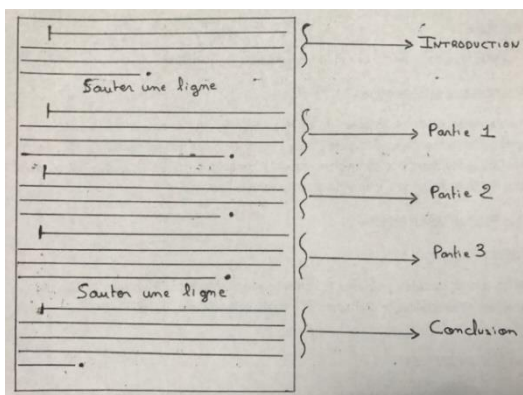 INTRODUCTION
Sauter une ligne
Partie 1
Partie 2
Partie 3
Sauter une ligne
Conclusion